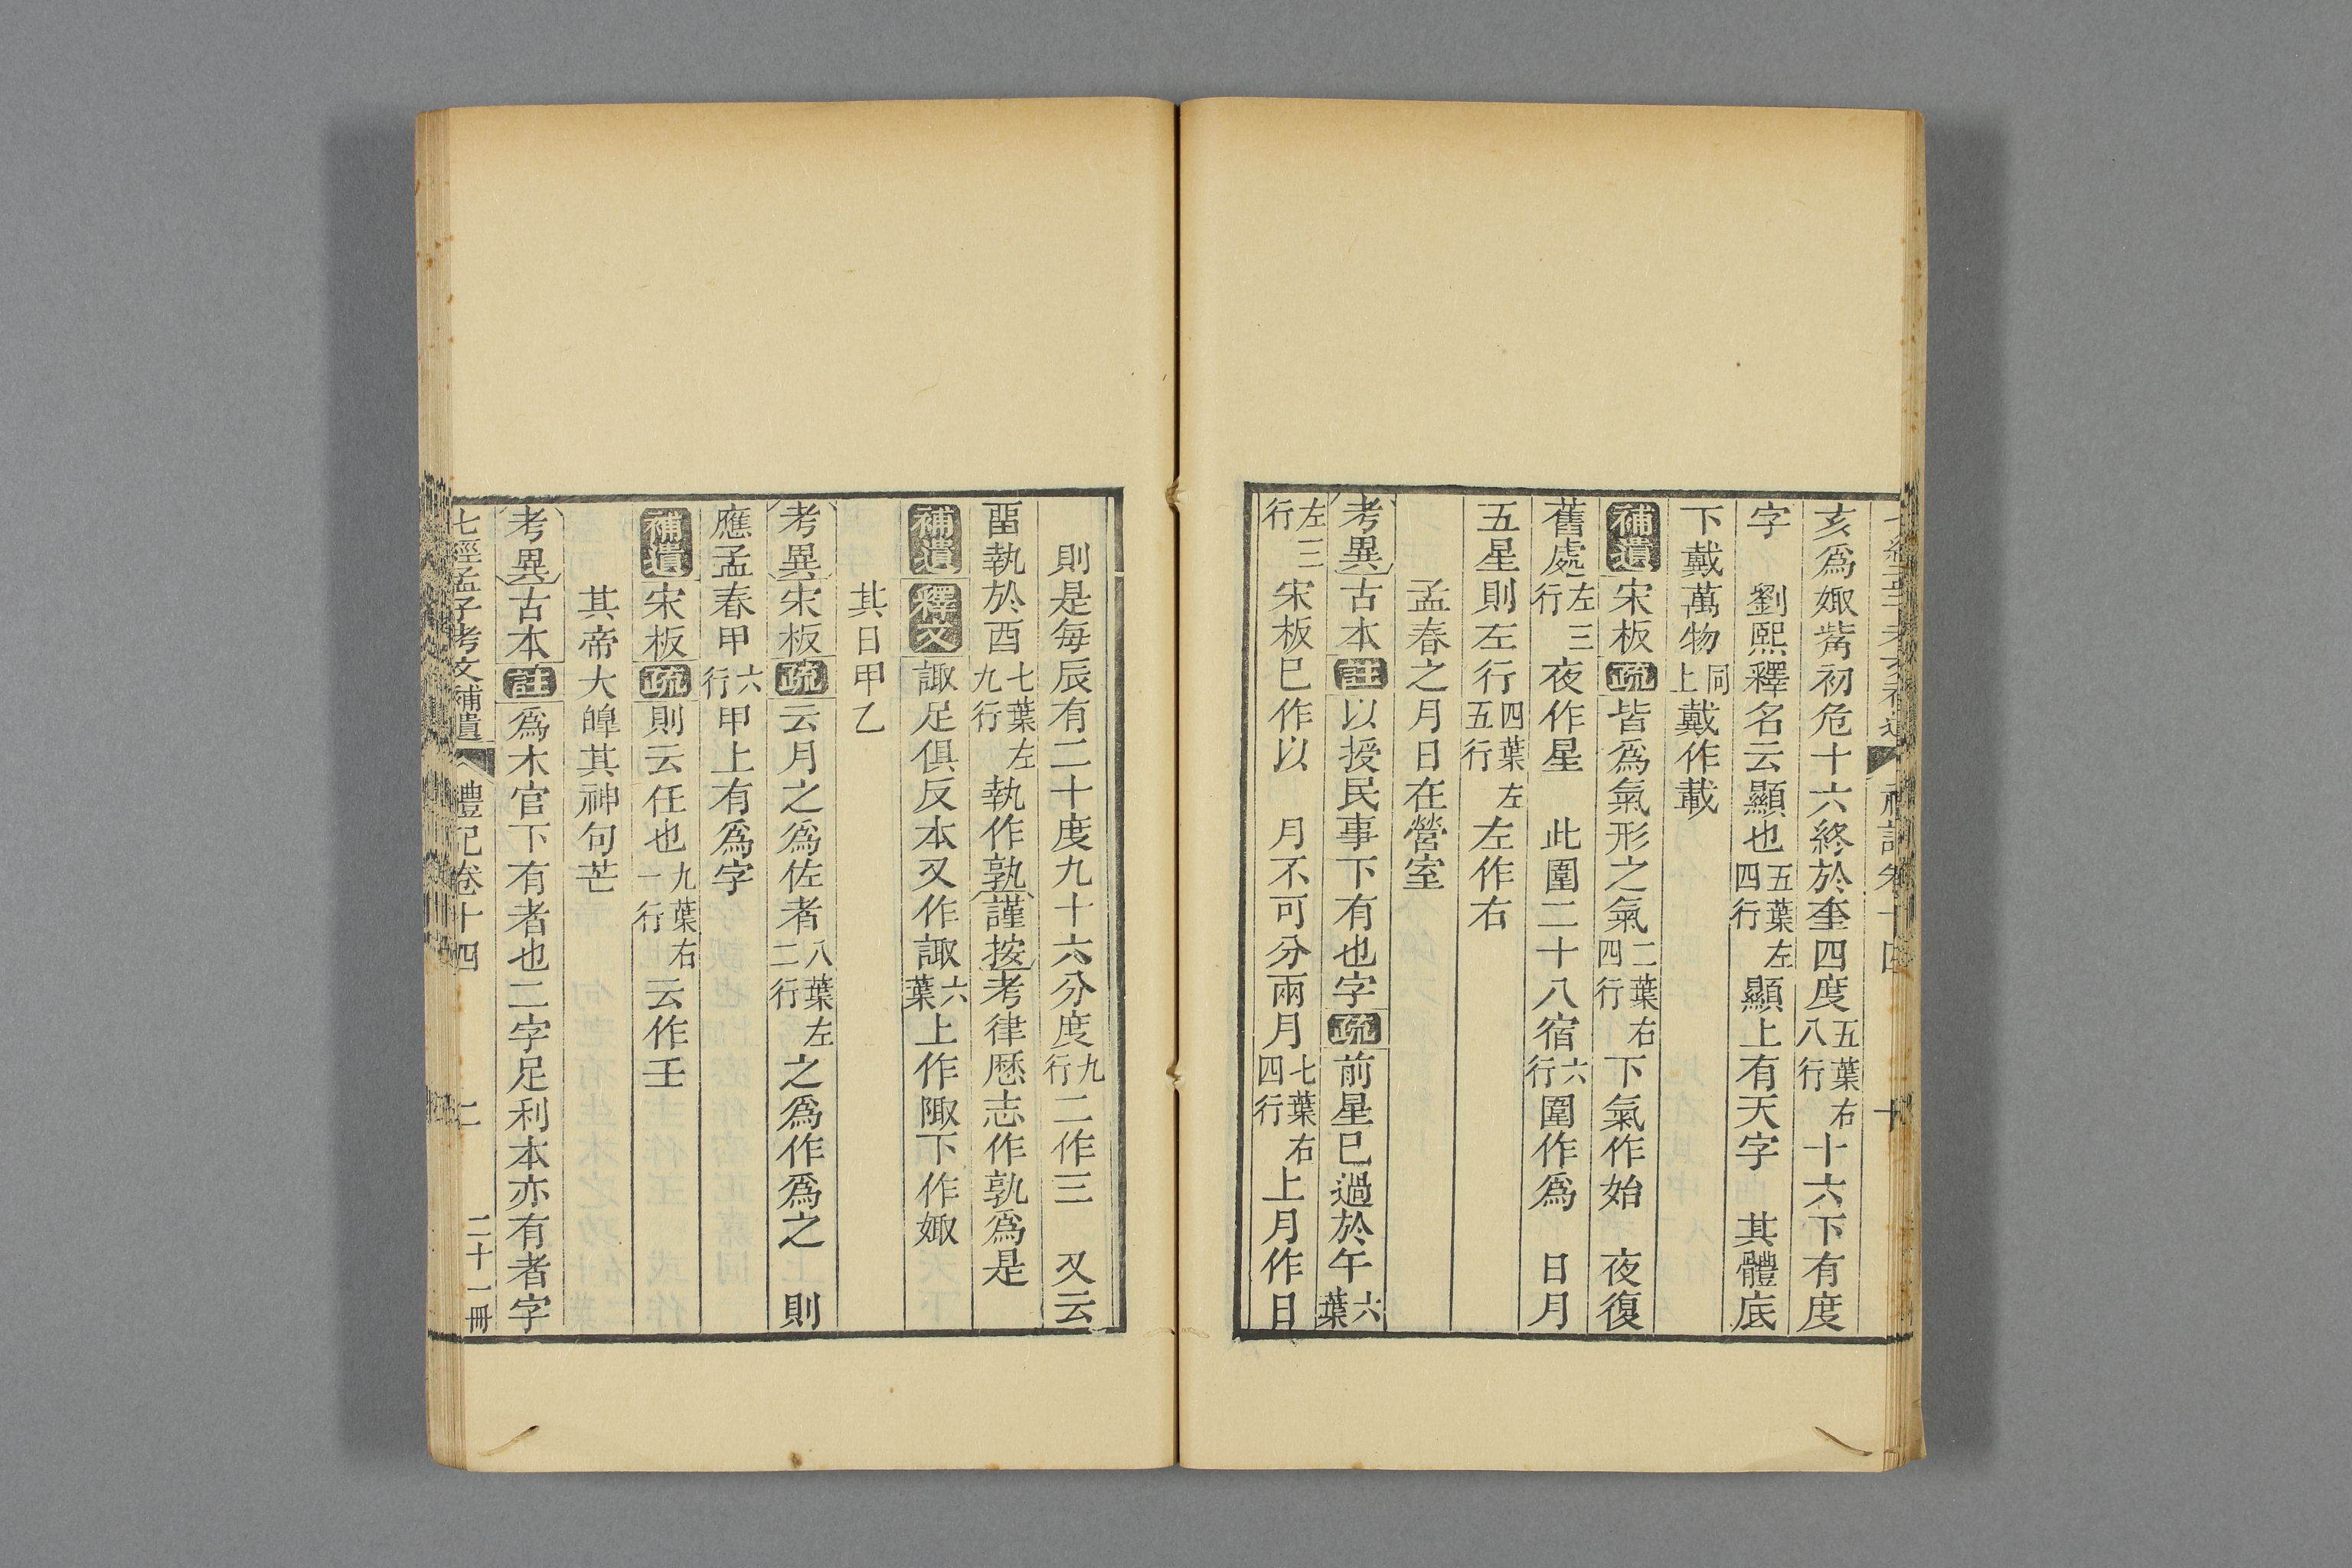 亥爲娵觜初危十六終於奎四度五葉右八行十六下有度
字 劉熙釋名云顯也五葉左四行顯上有天字 其體底
下戴萬物同上戴作載
補遺 宋板 疏 皆爲氣形之氣二葉右四行下氣作始 夜復
舊處左三行夜作星 此圍二十八宿六行圍作爲 日月
五星則左行四葉左五行左作右
孟春之月日在營室
考異 古本 註 以授民事下有也字 疏 前星已過於午六葉
左三行宋板已作以 月不可分兩月七葉右四行上月作日
則是每辰有二十度九十六分度九行二作三 又云
畱執於酉七葉左九行執作孰 謹按 考律歷志作孰爲是
補遺 釋文 諏足俱反本又作諏六葉上作陬下作娵
其日甲乙
考異 宋板 疏 云月之爲佐者八葉左二行之爲作爲之 則
應孟春甲六行甲上有爲字
補遺 宋板 疏 則云任也九葉右一行云作壬
其帝大皞其神句芒
考異 古本 註 爲木官下有者也二字足利本亦有者字
七經孟子考文補遺 禮記卷十四 二 二十一冊